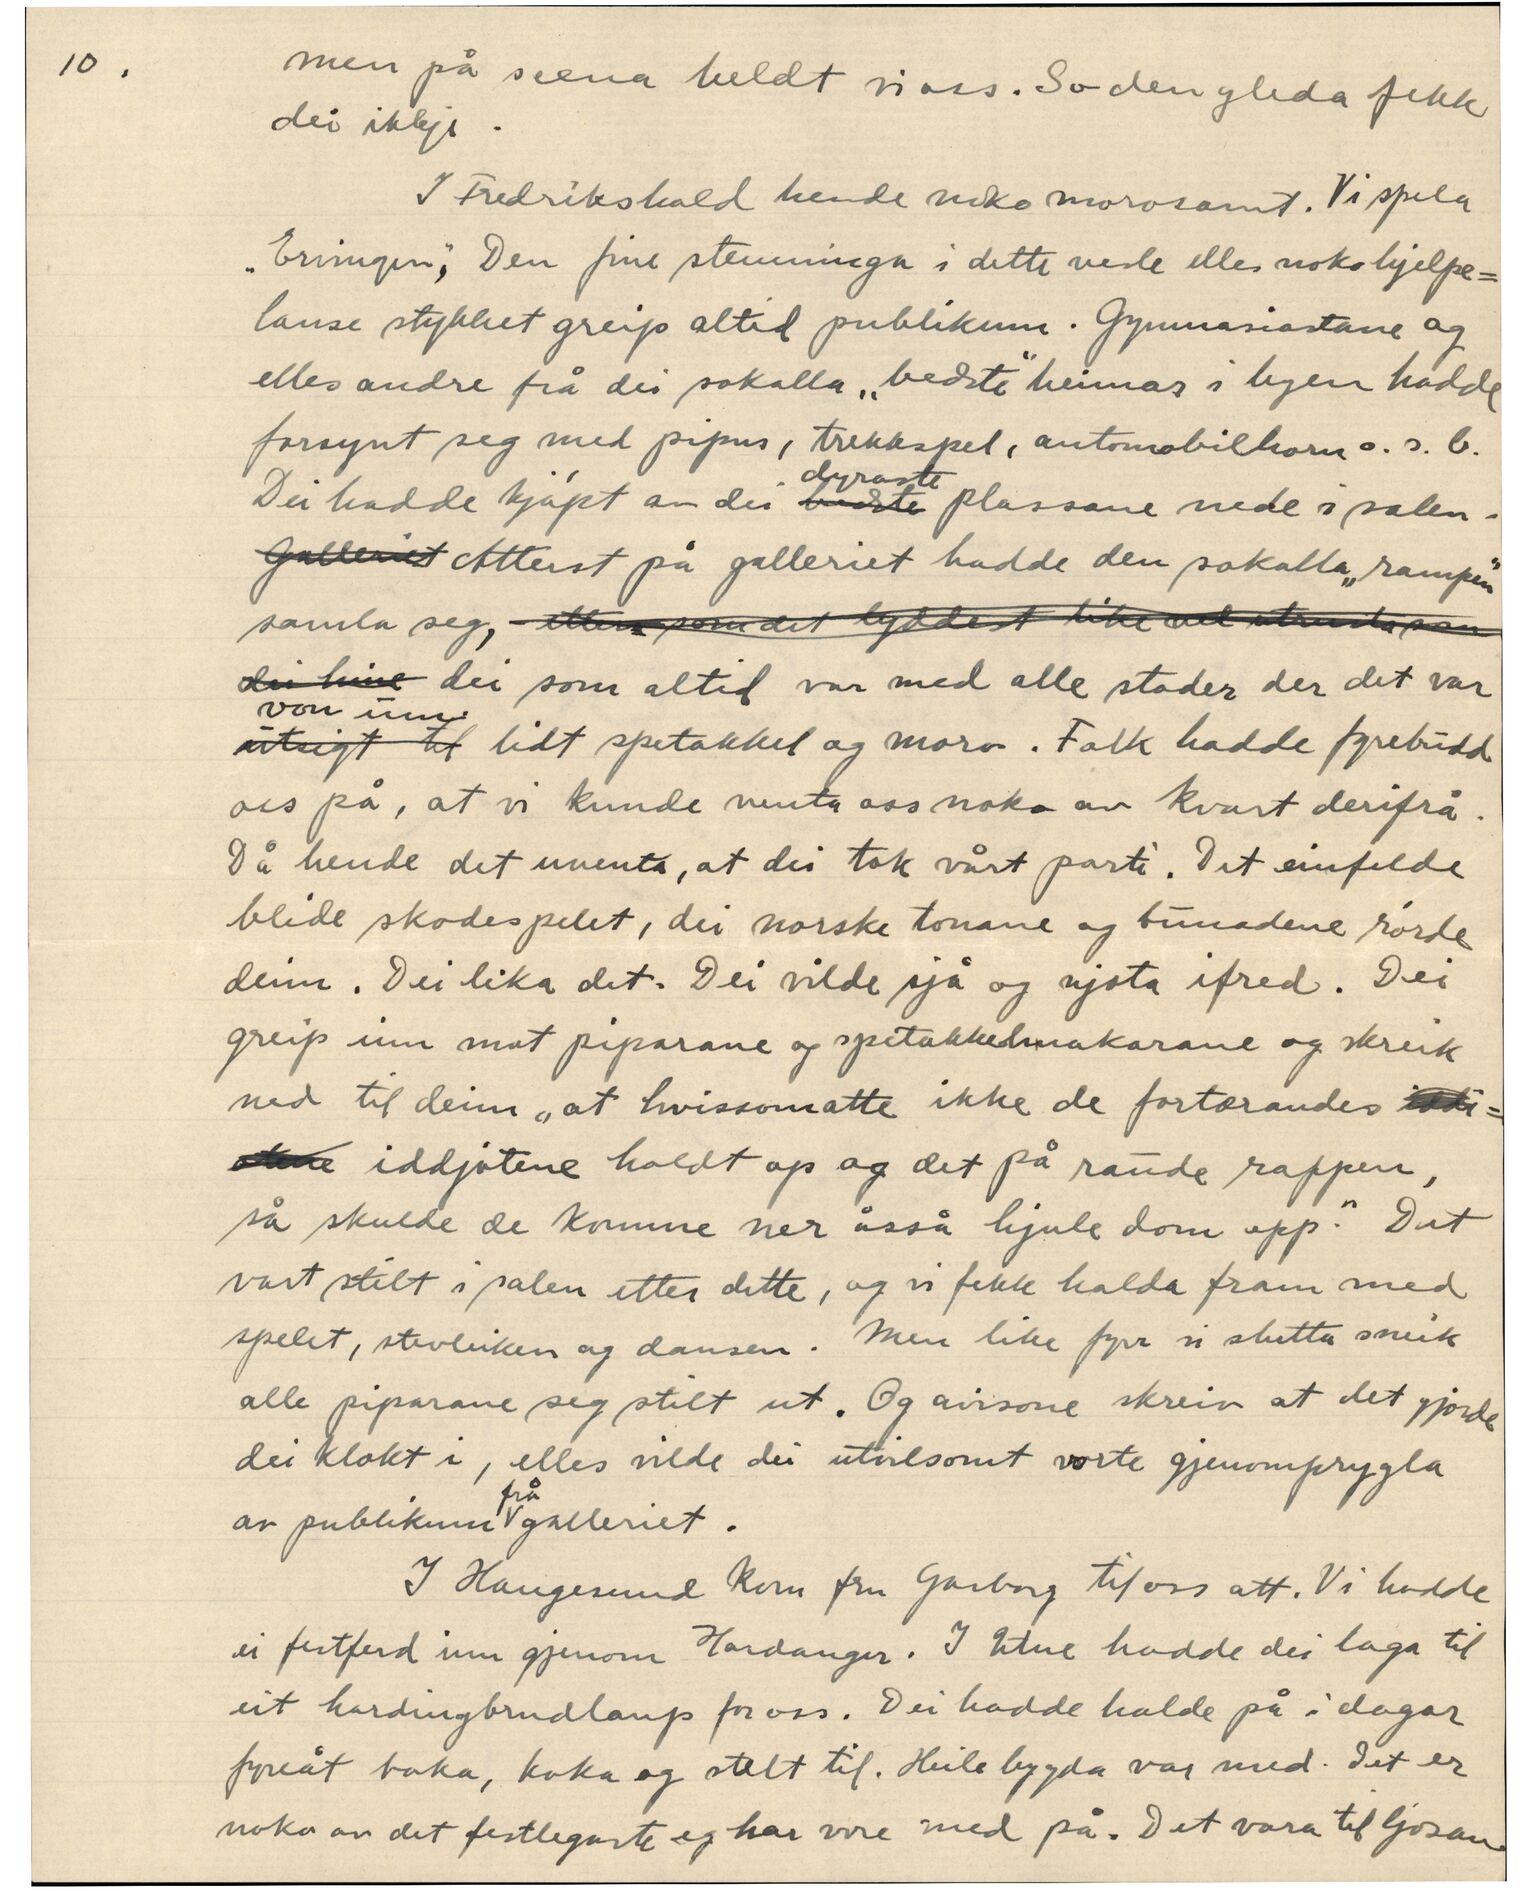 10.
men på scena heldt vi oss. So den gleda fekk
dei ikkje.
I Fredrikshald hende noko morosamt. Vi spela
„Ervingen”, Den fine stemninga i dette vesle elles noko hjelpe=
lause stykket greip altid publikum. Gymnasiastane og
elles andre frå dei sokalla „bedste” heimar i byen hadde
forsynt seg med pipur, trekkspel, automobilhorn o. s. b.
dyraste
Dei hadde kjøpt av dei bedste plassane nede i salen.
Galleriet Atterst på galleriet hadde den sokalla „rampen”
samla seg, som det lyddest like vel utrusta som
dei hine dei som altid var med alle stader der det var
von um
utsigt til lidt spetakkel og moro. Folk hadde fyrebudd
oss på, at vi kunde venta oss noko av kvart derifrå.
Då hende det uventa, at dei tok vårt parti. Det einfelde
blide skodespelet, dei norske tonane og bunadene rørde
deim. Dei lika det. Dei vilde sjå og njota ifred. Dei
greip inn mot piparane og spetakkelmakarane og skreik
ned til deim „at hvissomatte ikke de fortærandes iddi=
otene iddjotene holdt op og det på raude rappen,
så skulde de komme ner åsså hjule dom opp.” Det
vart stilt i salen etter dette, og vi fekk halda fram med
spelet, stevleiken og dansen. Men like fyrr vi slutta sneik
alle piparane seg stilt ut. Og avisone skreiv at det gjorde
dei klokt i, elles vilde dei utvilsomt vorte gjenomprygla
frå
av publikum galleriet.
I Haugesund kom fru Garborg til oss att. Vi hadde
ei festferd inn gjenom Hardanger. I Utne hadde dei laga til
eit hardingbrudlaup for oss. Dei hadde halde på i dagar
fyreåt baka, koka og stelt til. Heile bygda var med. Det er
noko av det festlegaste eg har vore med på. Det vara til ljosan